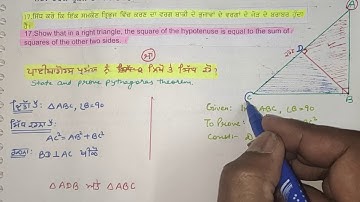 17.ਸਿੱਧ ਕਰੋ ਕਿ ਇੱਕ ਸਮਕੋਣ ਤ੍ਰਿਭੁਜ ਵਿੱਚ ਕਰਣ ਦਾ ਵਰਗ ਬਾਕੀ ਦੋ ਭੁਜਾਵਾਂ ਦੇ ਵਰਗਾਂ ਦੇ ਜੋੜ ਦੇ ਬਰਾਬਰ ਹੁੰਦਾ ਹੈ।
17.Show that in a right triangle, the square of the hypotenuse is equal to the sum of squares of the other two sides.
ਜਾਂ
ਪਾਈਥਾਗੋਰਸ ਪ੍ਰਮੇਯ ਨੂੰ ਲਿਖੋ ਤੇ ਸਿੱਧ ਕਰੋ?
State and prove pythagoras theorem.
A
D
C
B
ਦਿੱਤਾ ਹੈ: ΔABC, ∠B=90
ਸਿੱਧ ਕਰਨਾ ਹੈ:
AC²=AB²+BC²
ਰਚਨਾ: BD⊥AC ਖਿੱਚੋ
ΔADB ਅਤੇ ΔABC
Given: ABC, ∠B=90
To Prove:
Const: